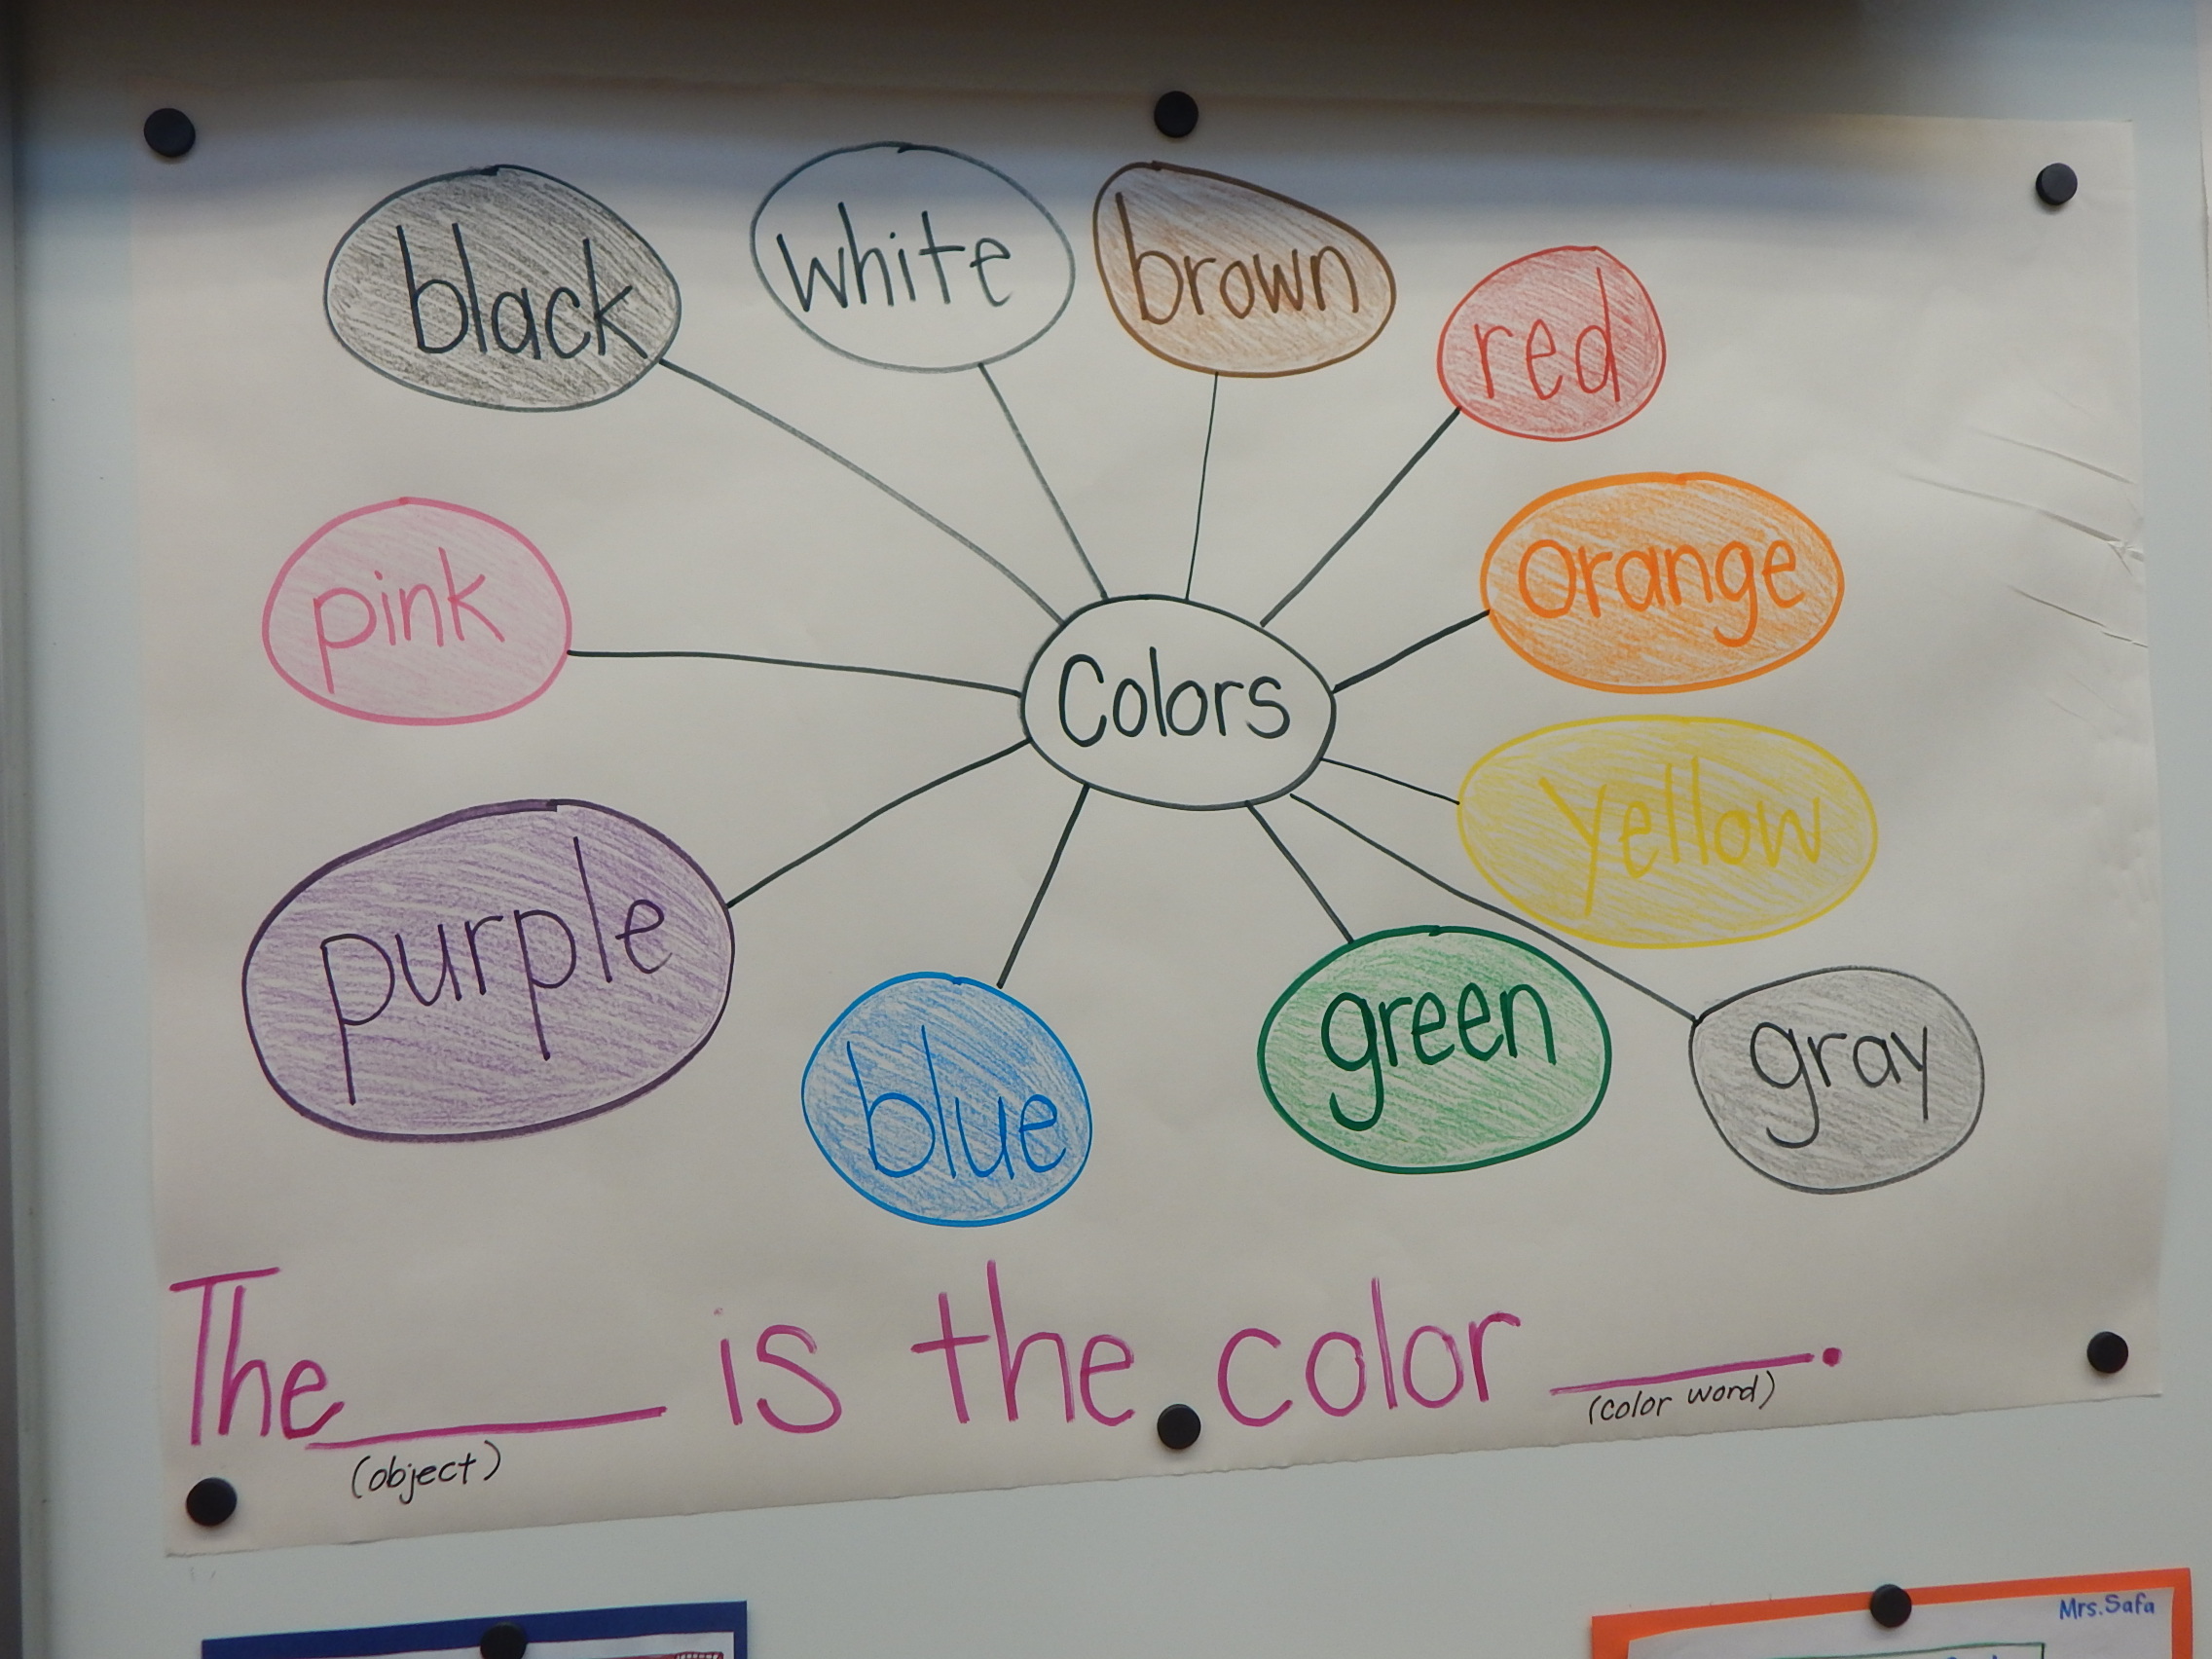 black
white
brown
red
pink
orange
Colors
yellow
purple
blue
green
gray
The ____ is the color ____.
(object)
(color word)
Mrs. Safa